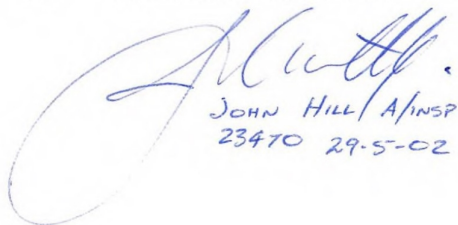 JOHN HILL A/INSP
23470 29-5-02